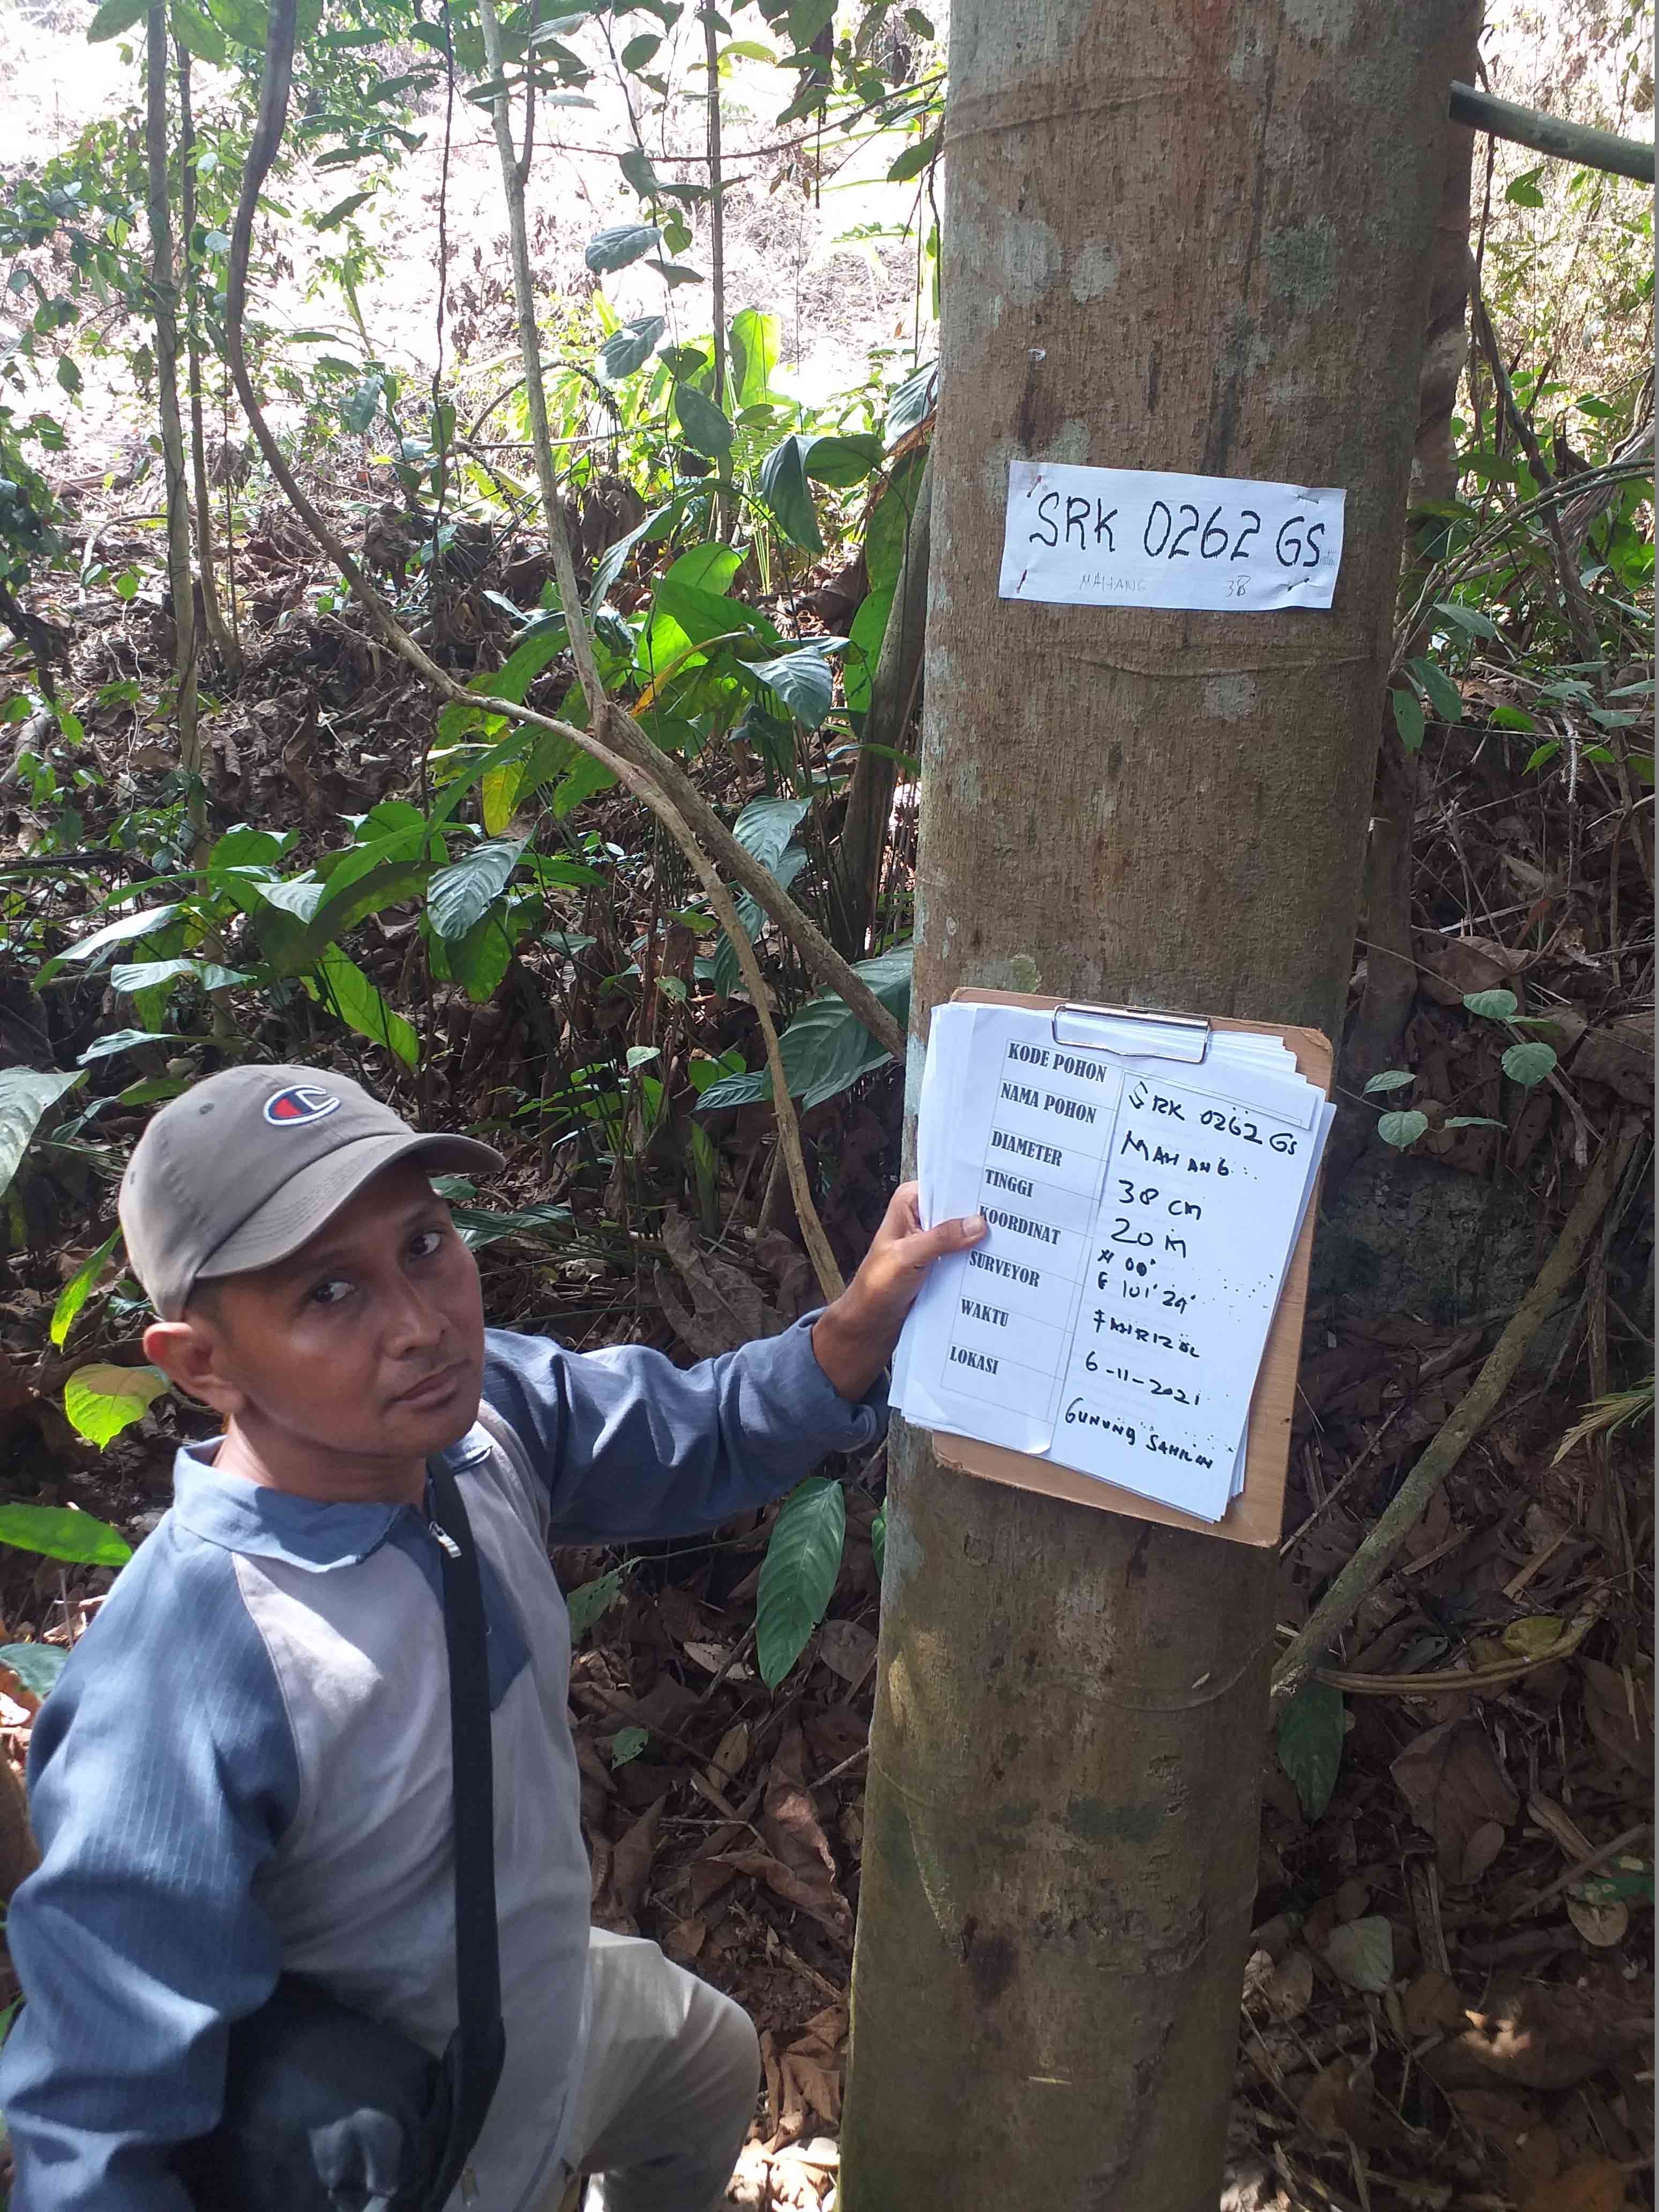 SRK 0262 GS
MAHANG 38
KODE POHON SRK 0262 GS
NAMA POHON MAHANG
DIAMETER 38 cm
TINGGI 20 m
KOORDINAT N 00°
E 101° 24'
SURVEYOR FAHRIZAL
WAKTU 6-11-2021
LOKASI GUNUNG SAHILAN